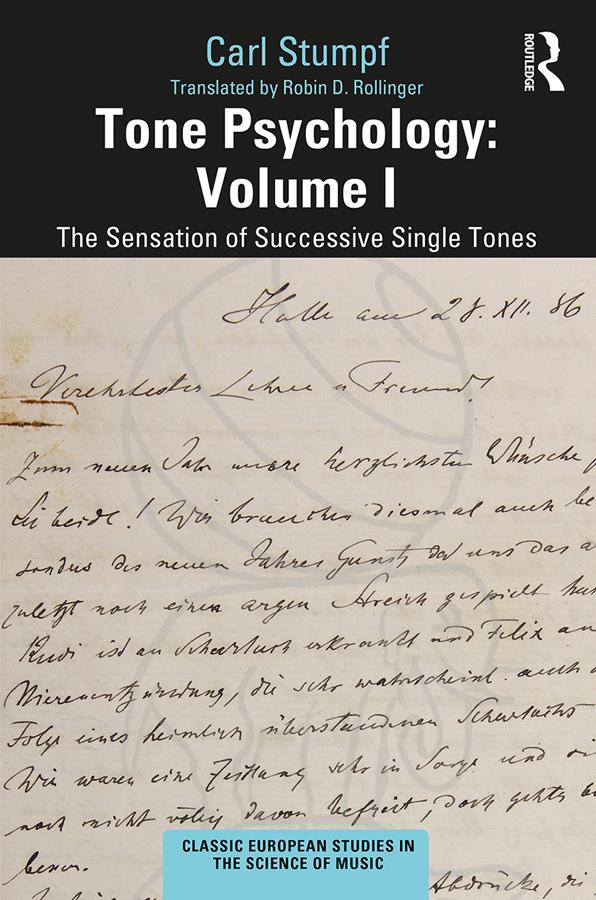 Carl Stumpf
ROUTLEDGE
Translated by Robin D. Rollinger
Tone Psychology:
Volume I
The Sensation of Successive Single Tones
Halle am 28. XII. 86
Verehrtester Lehrer u Freund!
Zum neuen Jahr unsre herzlichsten Wünsche f
Sie beide! Wir brauchen diesmal auch be
sonders des neuen Jahres Gunst, da uns das a
zuletzt noch einen argen Streich gespielt hat
Rudi ist an Scharlach erkrankt und Felix an
Nierenentzündung, die sehr wahrscheinl. auch
Folge eines heimlich überstandenen Scharlachs
Wir waren eine Zeitlang sehr in Sorge und
noch nicht völlig davon befreit, doch gehts
besser.
Abdrücke, die
CLASSIC EUROPEAN STUDIES IN
THE SCIENCE OF MUSIC